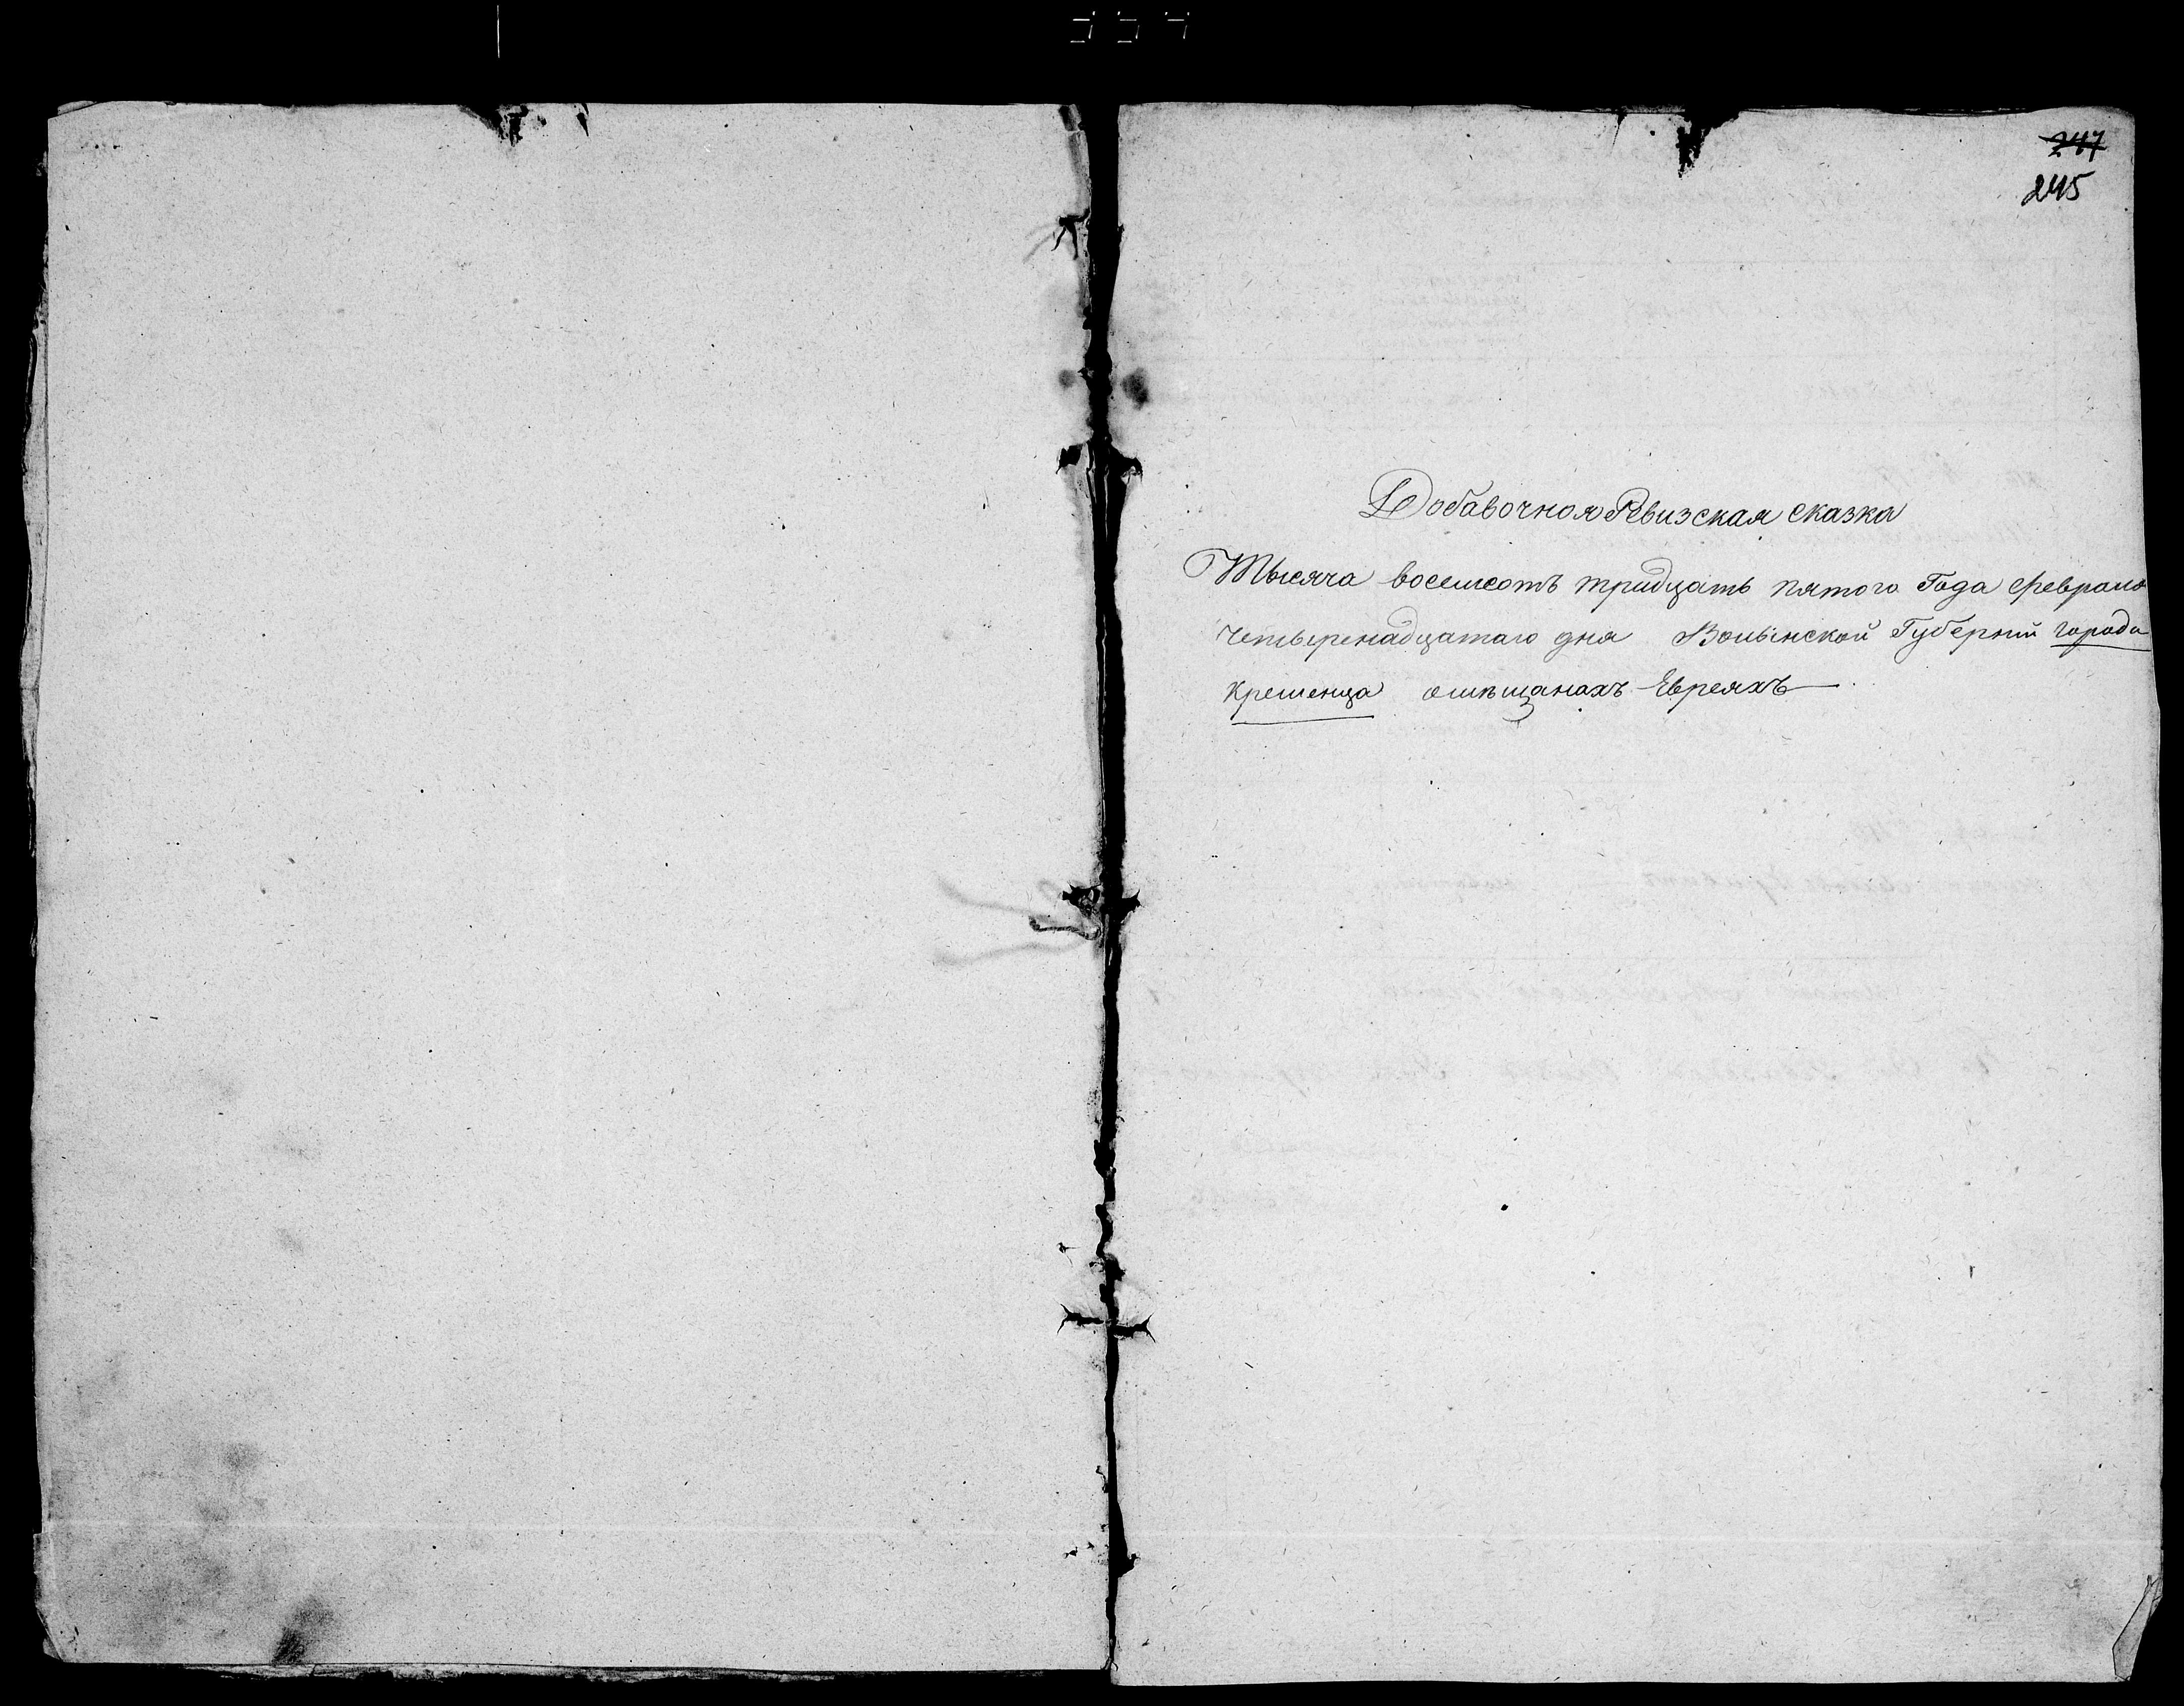 247
245
Добавочная Ревизская сказка
Тысяча восемсотъ тридцать пятого Года февраля
четыренадцатаго дня Волынской Губерніи города
Кременца омѣщанахъ Евреяхъ